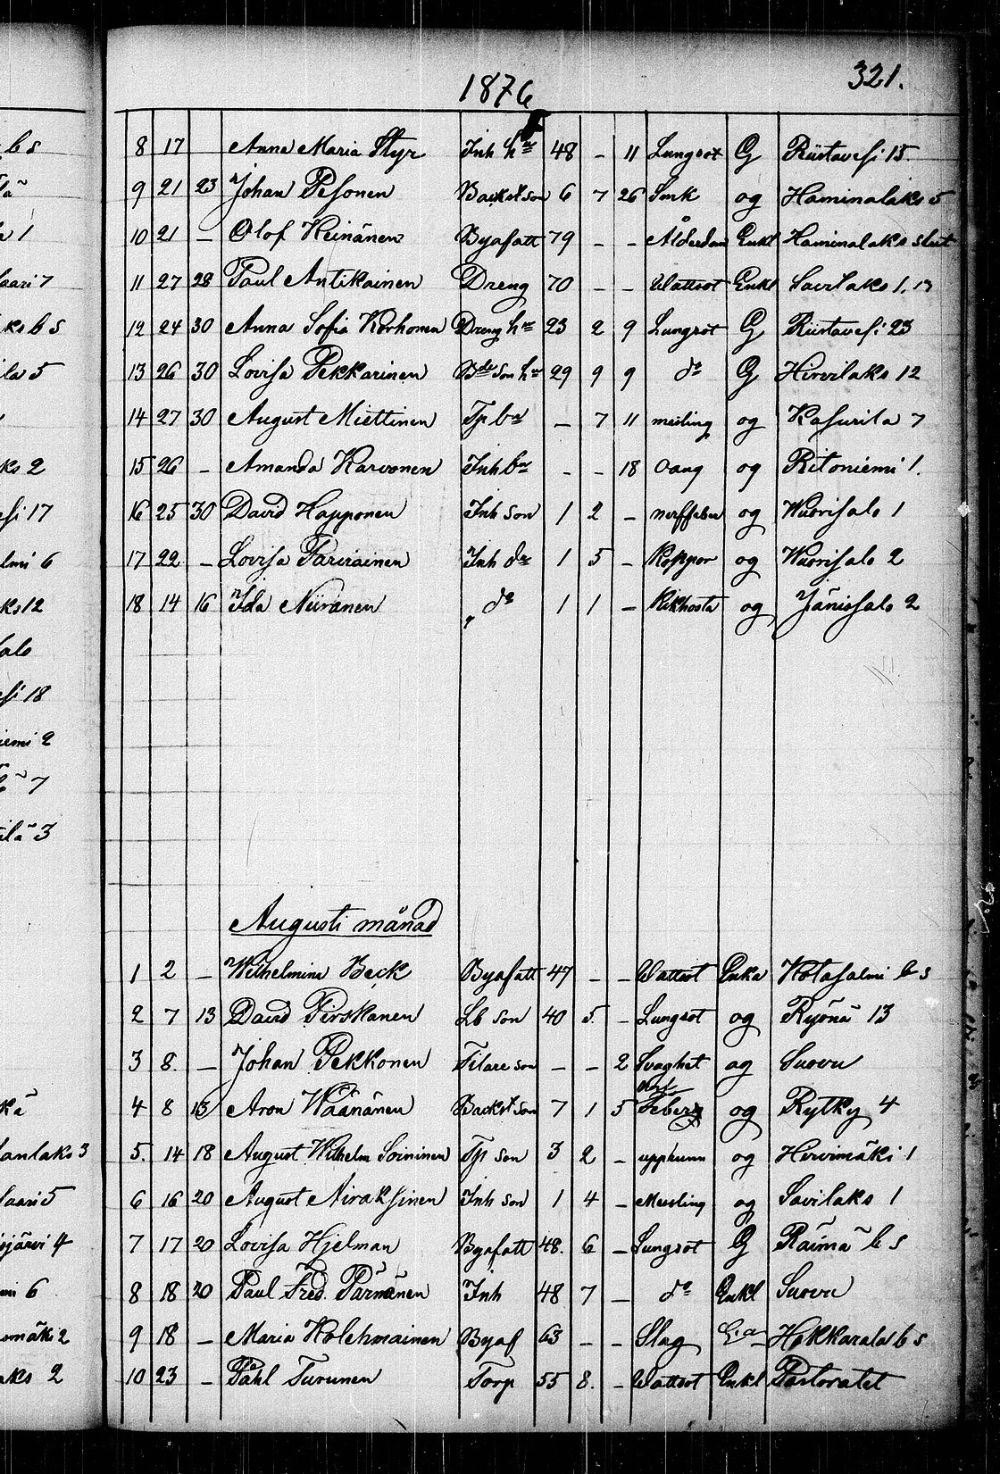 b s
1876
321.
8 17 Anna Maria Styr Inh hr 48 - 11 Lungsot G Riistavesi 15.
9 21 23 Johan Pesonen Backst son 6 7 26 Sjuk og Haminalaks 5
a 1
10 21 - Olof Heinänen Byafatt 79 - - Ålderdom Enkl Haminalaks slut
saari 7
11 27 28 Paul Antikainen Dreng 70 - - Wattsot Enkl Savilaks 1.
ks b s
12 24 30 Anna Sofia Korhonen Dreng hr 23 2 9 Lungsot G Riistavesi 23
la 5
13 26 30 Lovisa Pekkarinen Bde son hr 29 9 9 do G Hirvilaks 12
14 27 30 August Miettinen Tp bn - 7 11 mesling og Kasurila 7
ks 2
15 26 - Amanda Karvonen Inh br - - 18 og Ritoniemi 1.
si 17
16 25 30 David Happonen Inh son 1 2 - nerffeber og Wuorisalo 1
lmi 6
17 22 - Lovisa Parviainen Inh dr 1 5 - Koppor og Wuorisalo 2
ks 12
18 14 16 Ida Niiranen " do 1 1 - Kikhosta og Jänissalo 2
salo
si 18
iemi 2
7
ilä 3
Augusti månad
1 2 - Wilhelmina Beck Byafatt 47 - - Wattsot Enka Kotasalmi b s
2 7 13 David Pirskanen Lb son 40 5. - Lungsot og Ryönä 13
3 8. - Johan Pekkonen Tilare son - - 2 Svaghet og Suovu
4 8 13 Aron Wäänänen Backst son 7 1 5 feber og Rytky 4
anlaks 3
5. 14 18 August Wilhelm Soininen Tp son 3 2 - og Hirvimäki 1
saari 5
6 16 20 August Airaksinen Inh son 1 4 - Mesling og Savilaks 1
järvi 4
7 17 20 Lovisa Hjelman Byafatt 48. 6 - Lungsot G Räimä b s
mi 6
8 18 20 Paul Fred. Pärnänen Inh 48 7 - do Enkl Suovu
mäki 2
9 18 - Maria Kolehmainen Byaf 63 - - Slag Hakkarala b s
aks 2
10 23 - Påhl Turunen Torp 55 8. - Wattsot Enkl Pastoratet